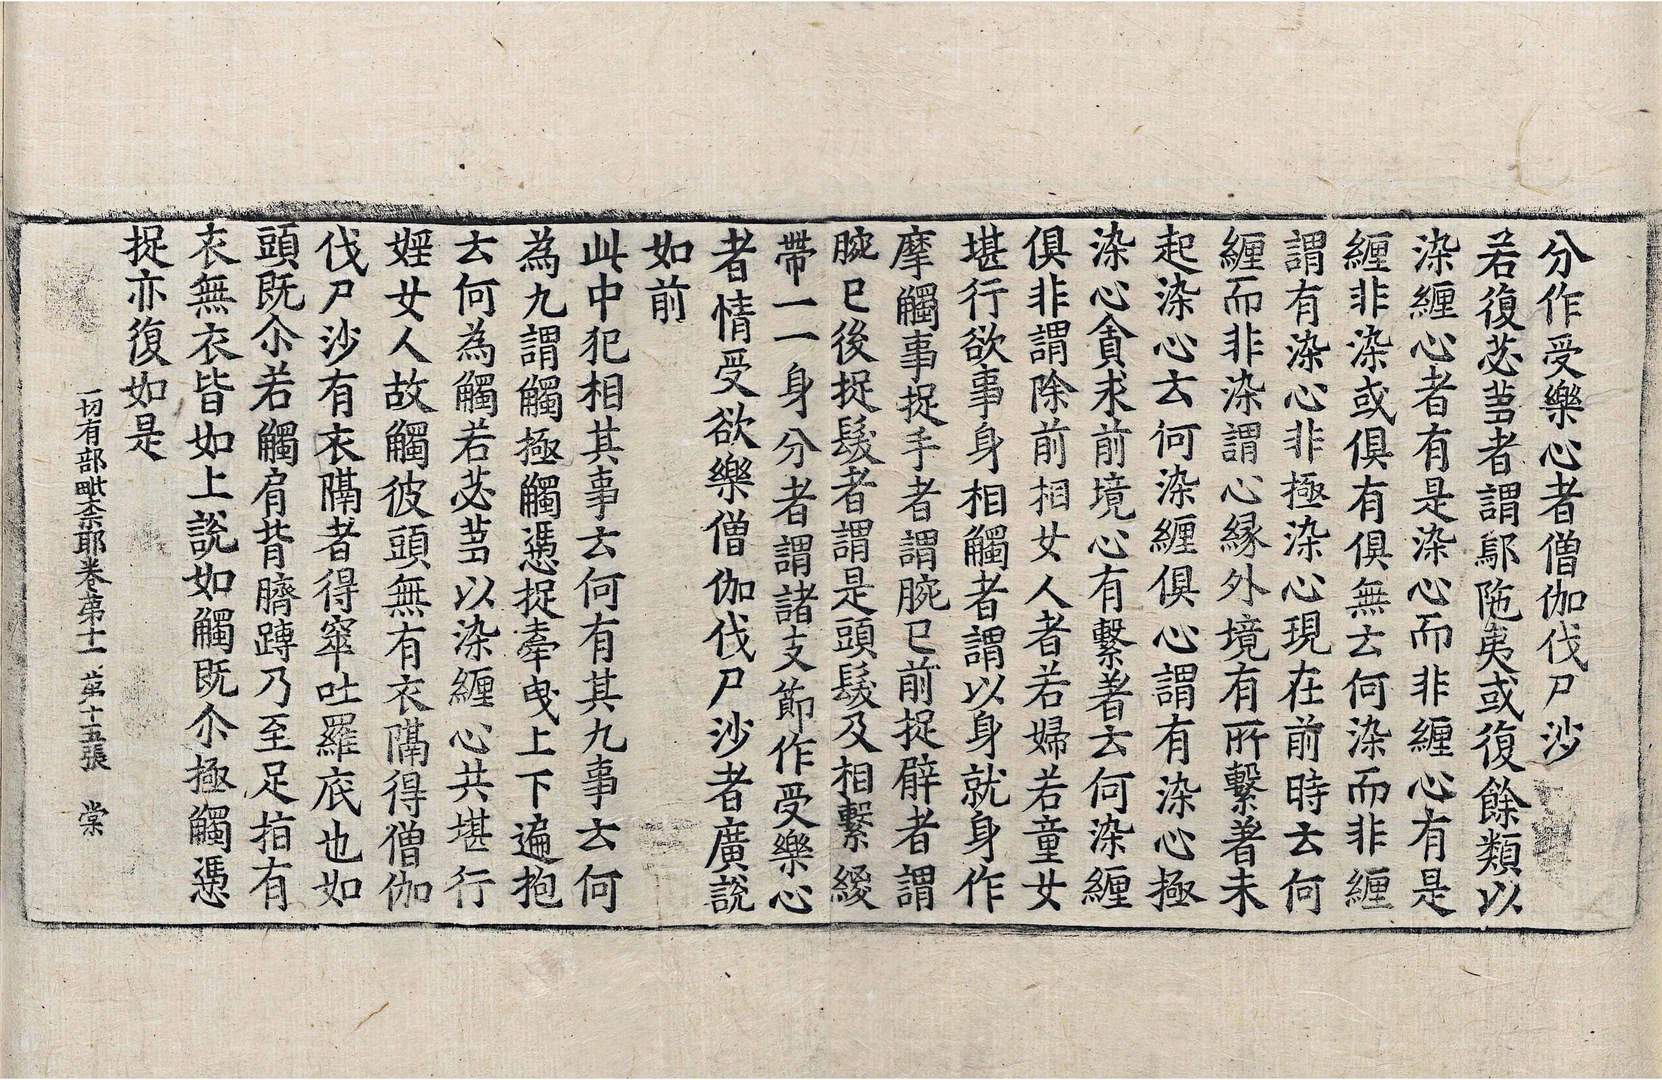 分作受樂心者僧伽伐尸沙
若復苾芻者謂鄔陁夷或復餘類以
染纏心者有是染心而非纏心有是
纏非染或俱有俱無去何染而非纏
謂有染心非極染心現在前時去何
纏而非染謂心緣外境有所繫著未
起染心去何染纏俱心謂有染心極
染心貪求前境心有繫著去何染纏
俱非謂除前相女人者若婦若童女
堪行欲事身相觸者謂以身就身作
摩觸事捉手者謂腕已前捉臂者謂
腕已後捉髮者謂是頭髮及相繫綬
帶一一身分者謂諸支節作受樂心
者情受欲樂僧伽伐尸沙者廣說
如前
此中犯相其事去何有其九事去何
為九謂觸極觸憑捉牽曳上下遍抱
去何為觸若苾芻以染纏心共堪行
婬女人故觸彼頭無有衣隔得僧伽
伐尸沙有衣隔者得窣吐羅底也如
頭既尒若觸肩背臍䏝乃至足指有
衣無衣皆如上說如觸既尒極觸憑
捉亦復如是
一切有部毗奈耶卷第十一 第十五張 棠